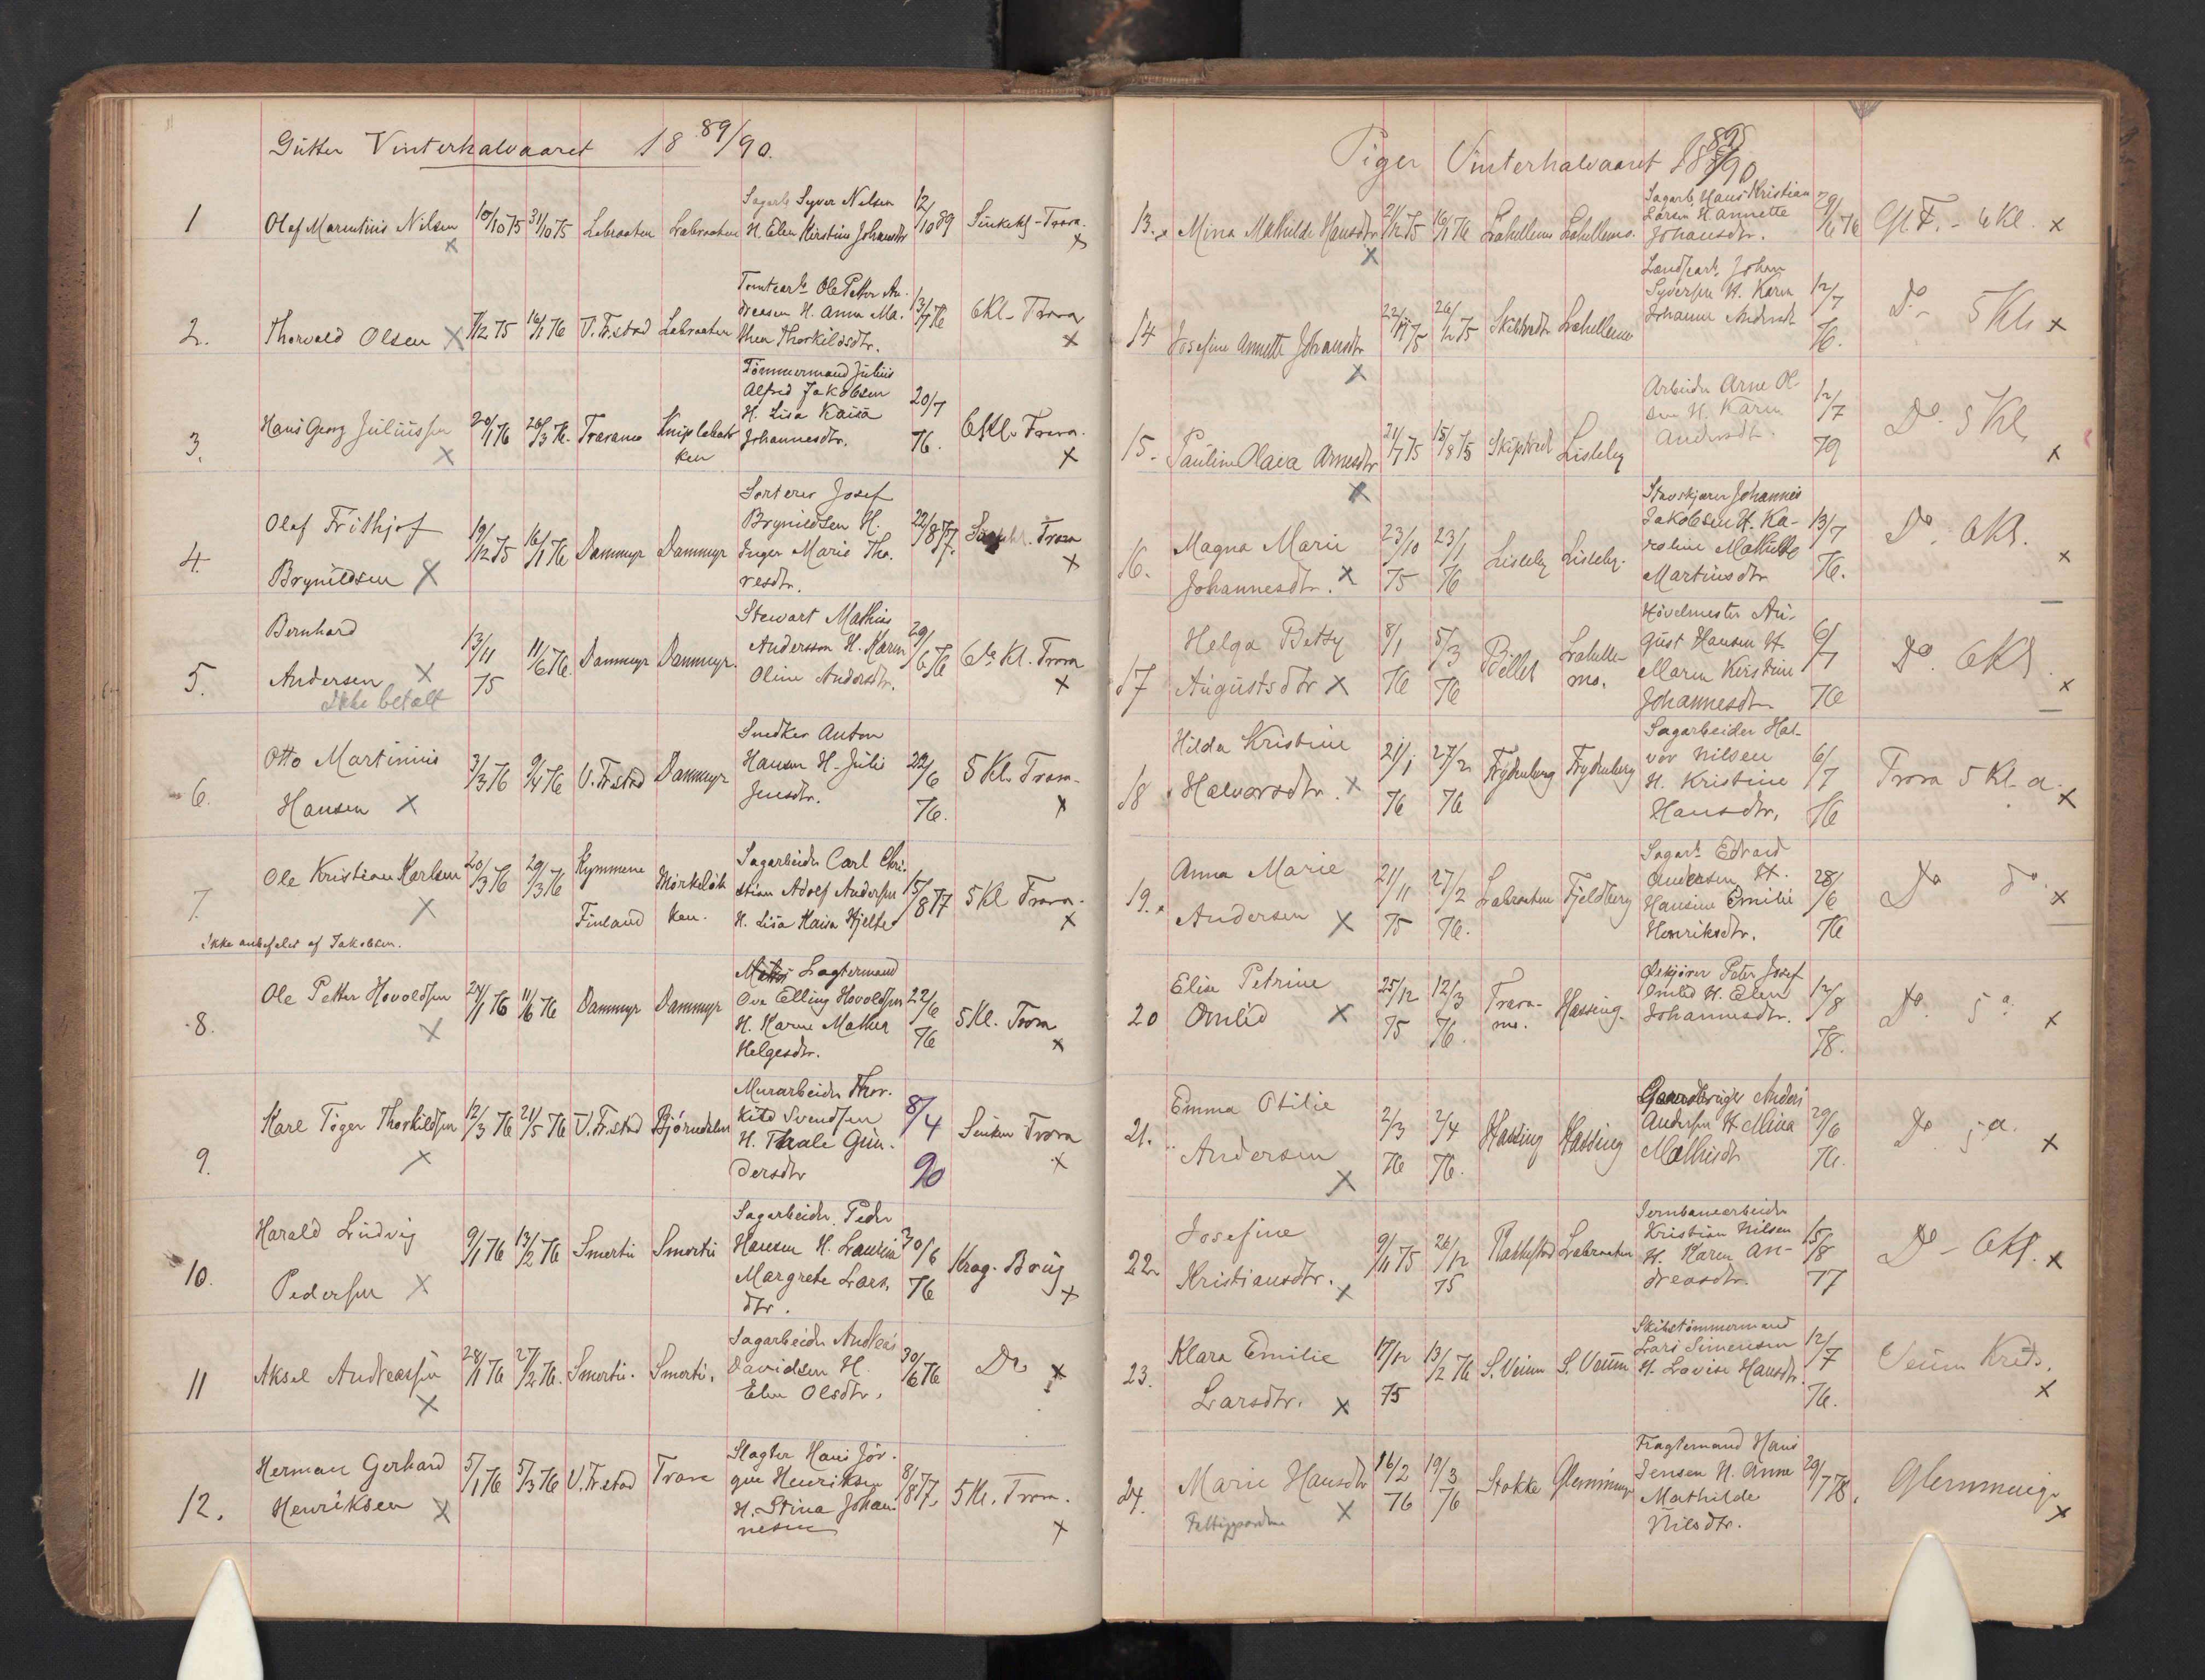 Gutter Vinterhalvaaret 18 89/90.
1 Olaf Marentius Nilsen 10/10 75 31/10 75 Labraaten Labraaten Sagarb. Syver Nilsen H. Elen Kirstine Johansdtr 12/10 89 Sinkekl - Trara. x
2. Thorvald Olsen x 7/12 75 16/1 76 V. Fr.stad Labraaten Tomtearb. Ole Petter Andreasen H. Anna Mathea Thorkildsdtr. 13/7 76 6Kl - Trara x
3. Hans Georg Juliussen x 20/1 76 26/3 76. Traramo Kniplebakken Tömmermand Julius Alfred Jakobsen H. Lisa Kaisa Johannesdtr. 20/7 76. 6Kl. Trara. x
4. Olaf Frithjof Brynildsen x 19/12 75 16/1 76 Dammyr Dammyr Sorterer Josef Brynildsen H. Inger Marie Thoresdtr. 22/8 77. Trara x
5. Bernhard Andersen x 13/11 75 11/6 76. Dammyr Dammyr. Stewart Mathias Andersson H. Karen Oline Andersdtr. 29/6 76 6te Kl. Trara x
ikke betalt
6. Otto Martinius Hansen x 3/3 76 9/4 76 V. Fr.stad Dammyr Snedker Anton Hansen H. Juli Jensdtr. 22/6 76. 5 Kl. Trara x
7. Ole Kristian Karlsen x 20/3 76 29/3 76 Kymmene Finland Mörkelökken. Sagarbeider Carl Christian Adolf Andersen H. Lisa Kaisa Hjelte 15/8 77 5 Kl Trara. x
Ikke anbefalet af Jakobsen.
8. Ole Petter Hovoldsen x 24/1 76 11/6 76 Dammyr Dammyr Lagtermand Ove Edling Hovoldsen H. Karen Mathea Helgesdtr. 22/6 76 5 Kl. Trara x
9. Karl Töger Thorkildsen x 12/3 76 21/5 76 V. Fr.stad Björndalen Murarbeider Thorkild Svendsen H. Thale Gundersdtr 8/4 90 Sinken Trara x
10. Harald Ludvig Pedersen x 9/1 76 13/2 76 Smertu Smertu Sagarbeider Peder Hansen H. Laurin Margrete Larsdtr. 30/6 76 Krag. Brug x
11 Aksel Andreassen x 28/1 76 27/2 76. Smertu. Smertu. Sagarbeider Andreas Davidsen H. Elen Olsdtr. 30/6 76 Do x
12. Herman Gerhard Henriksen x 5/1 76 5/3 76 V. Fr.stad Trara Slagter Hans Jörgen Henriksen H. Stina Johannesen 8/8 77. 5 Kl. Trara. x
Piger Vinterhalvaaret 1889/90
13. Mina Mathilde Hansdtr x 21/12 75 16/1 76 Lahellemo Lahellemo. Sagarb. Hans Kristian Larsen H Annette Johansdtr. 29/6 76 Gl. F. - 6 Kl. x
14 Josefine Annette Johansdtr x 22/11 75 26/12 75 Skibtvedt Lahellemo Landsarb. Johan Syversen H. Karen Johanne Andersdtr 12/7 76. Do - 5 Kl. x
15. Pauline Olava Arnesdtr x 21/7 75 15/8 75 Skiptvedt Lisleby Arbeider Arne Olsen H. Karen Andersdtr. 12/7 79 Do. 5 Kl. x
16. Magna Marie Johannesdtr. x 23/10 75 23/1 76 Lisleby Lisleby. Stavskjærer Johannes Jakobsen H. Karoline Mathilde Martinsdtr 13/7 76. Do. 6 Kl. x
17 Helga Betsy Augustsdtr x 8/1 76 5/3 76 Billet Lahellemo. Hövelmester August Hansen H. Maren Kirstine Johannesdtr 6/7 76 Do. 6 Kl. x
18 Hilda Kristine Halvorsdtr. x 21/1 76 27/2 76 Frydenberg Frydenberg Sagarbeider Halvor Nilsen H. Kristine Hansdtr. 6/7 76 Trara 5 Kl. a. x
19. Anna Marie Andersen x 21/11 75 27/2 76. Labraaten Fjeldberg Sagarb. Edvard Andersen H. Hansine Emilie Henriksdtr. 28/6 76 Do do x
20 Elise Petrine Omlid x 25/12 75 12/3 76. Traramo. Hassing Peter Josef Omlid H. Elen Johannesdtr. 12/8 78. Do. 5 a. x
21. Emma Otilie Andersen x 2/3 76 2/4 76. Hassing Hassing Gaardbruger Anders Andersen H. Mina Mathisdtr 29/6 76. Do. 5 a. x
22. Josefine Kristiansdtr. x 9/11 75 26/12 75 Labraaten Jernbanearbeider Kristian Nilsen H. Karen Andreasdtr. 15/8 77 Do - 6 Kl. x
23. Klara Emilie Larsdtr. x 17/12 75 13/2 76 S. Veum S. Veum Skibstömmermand Lars Simensen H. Lovise Hansdtr. 12/7 76. Veum Kreds. x
24. Marie Hansdtr x 16/2 76 19/3 76 Stokke Glemminge Fragtemand Hans Jensen H. Anne Mathilde Nilsdtr. 29/7 78. Glemminge x